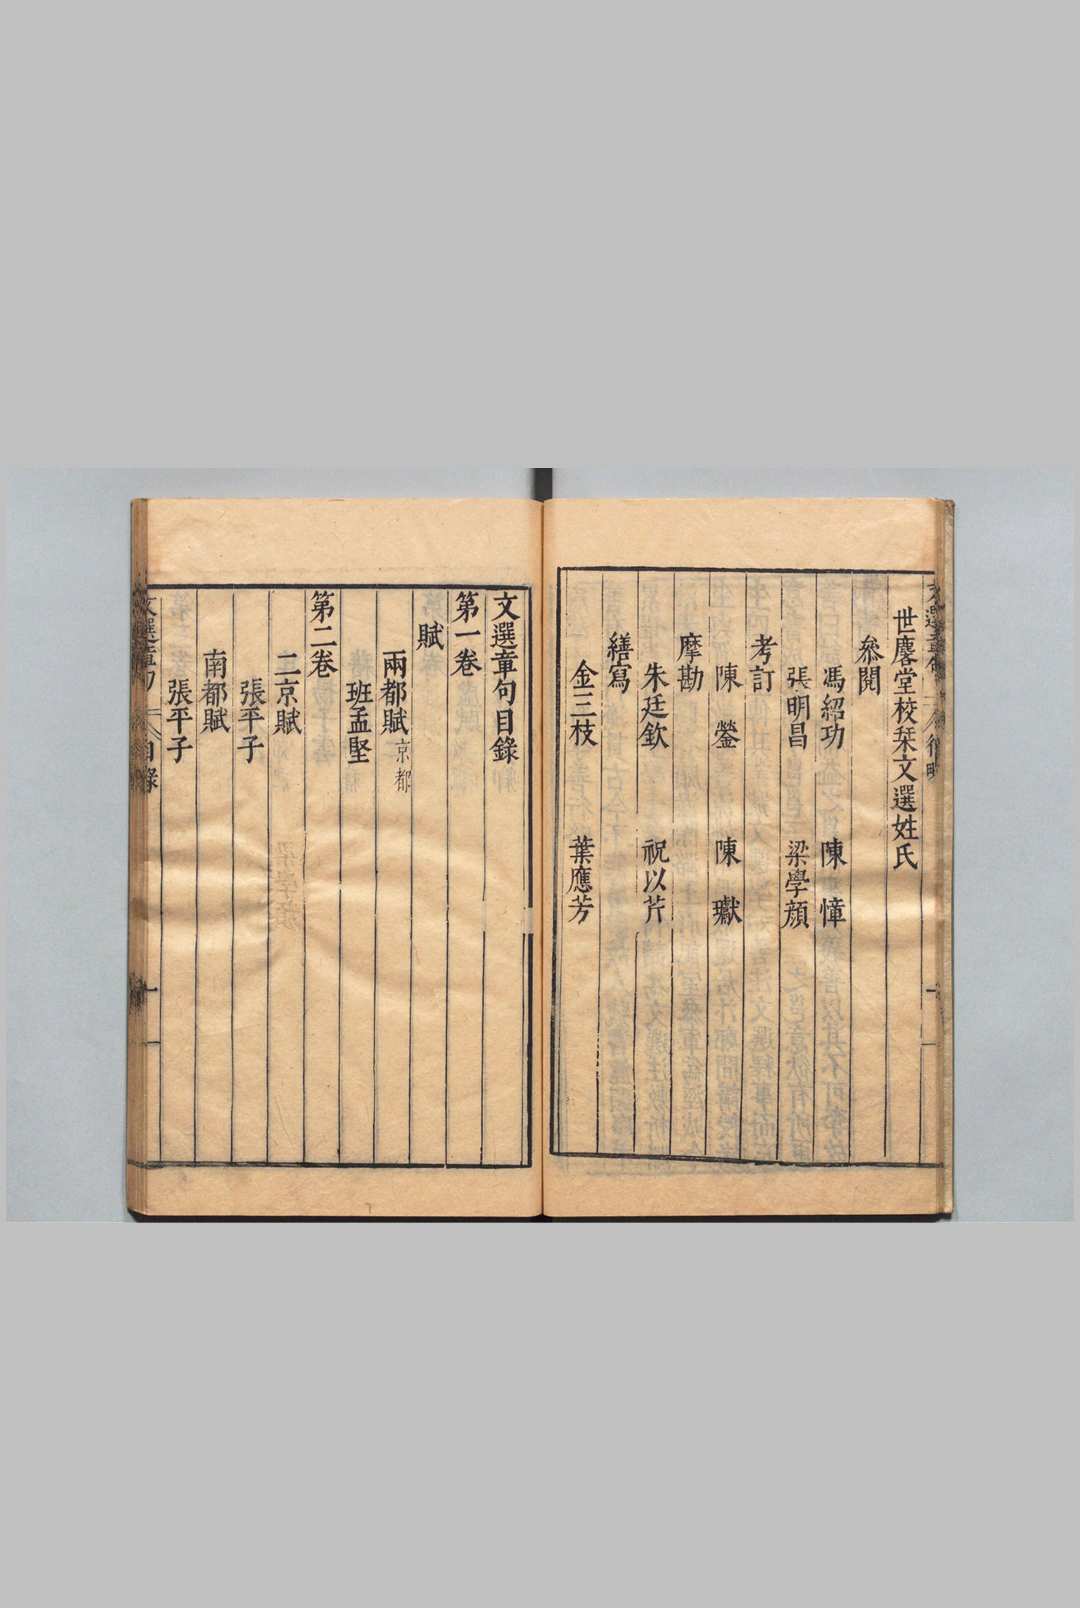 世麐堂校栞文選姓氏
參閱
馮紹功 陳 愇
張明昌 梁學顏
考訂
陳 鎣 陳 瓛
摩勘
朱廷欽 祝以芹
繕寫
金三枝 葉應芳
文選章句目錄
第一卷
賦
兩都賦京都
班孟堅
第二卷
二京賦
張平子
南都賦
張平子
文選章句 目錄 一